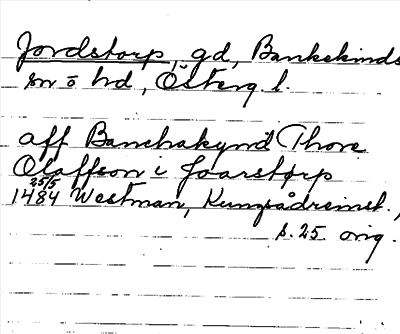 Jordstorp, gd, Bankekinds
sn o hd, Österg. l.
aff Banchakynd Thore
Olaffson i Joarstorp
25/5
1484 Westman, Kungsådreinst.,
s. 25 orig.